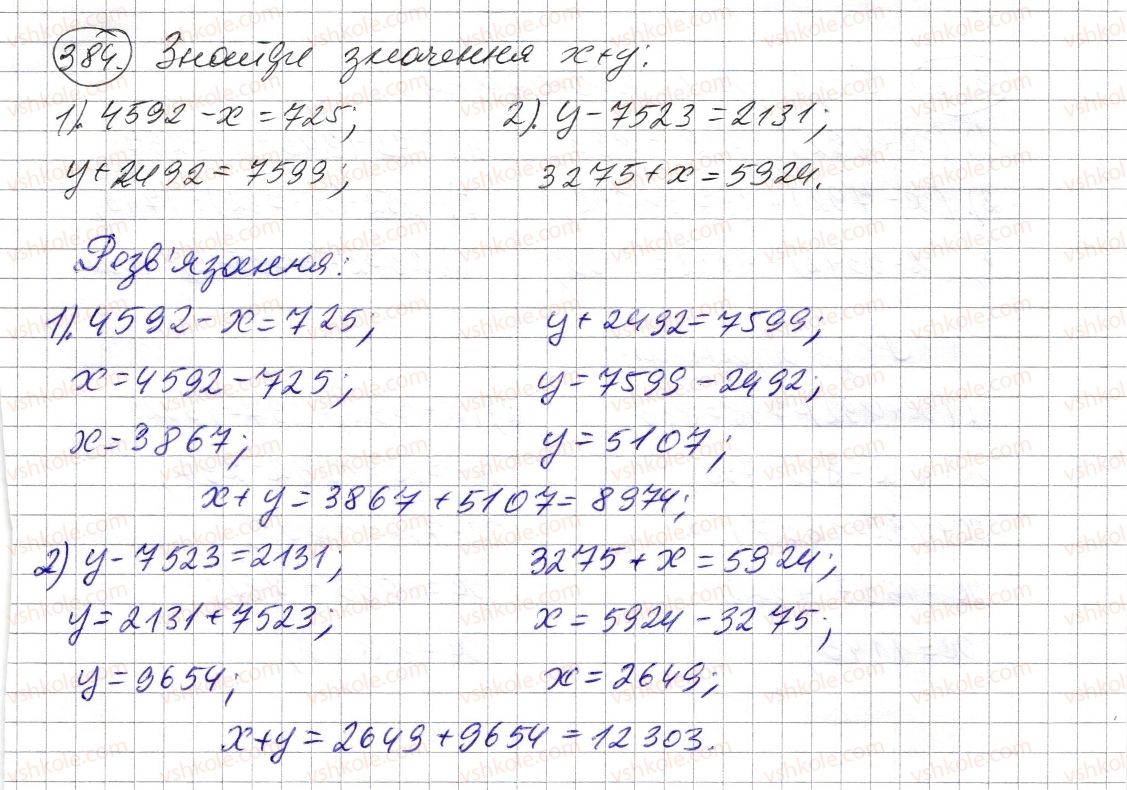 384. Знайди значення x+y:
1). 4592 - x = 725; 2). y - 7523 = 2131;
y + 2492 = 7599; 3275 + x = 5924.
Розв'язання:
1). 4592 - x = 725; y + 2492 = 7599;
x = 4592 - 725; y = 7599 - 2492;
x = 3867; y = 5107;
x + y = 3867 + 5107 = 8974;
2) y - 7523 = 2131; 3275 + x = 5924;
y = 2131 + 7523; x = 5924 - 3275;
y = 9654; x = 2649;
x + y = 2649 + 9654 = 12303.
vshkole.com